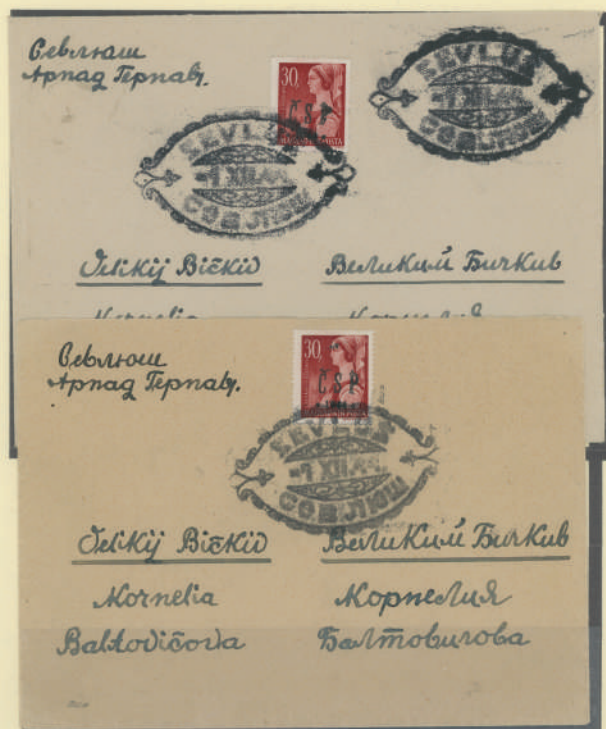 Севлюш
Арпад Герпавʒ.
30
ČSP
MAGYAR POSTA
SEVLUŠ
-1 XII.44
СЕВЛЮШ
SEVLUŠ
-1 XII.44
СЕВЛЮШ
Velikij Bičkiv Великий Бичкив
Kornelia Корнелия
Севлюш
Арпад
30
ČSP
SEVLUŠ
-1 XII.44
СЕВЛЮШ
Velikij Bičkiv Великий Бичкив
Kornelia Корнелия
Baltovičova Балтовичова